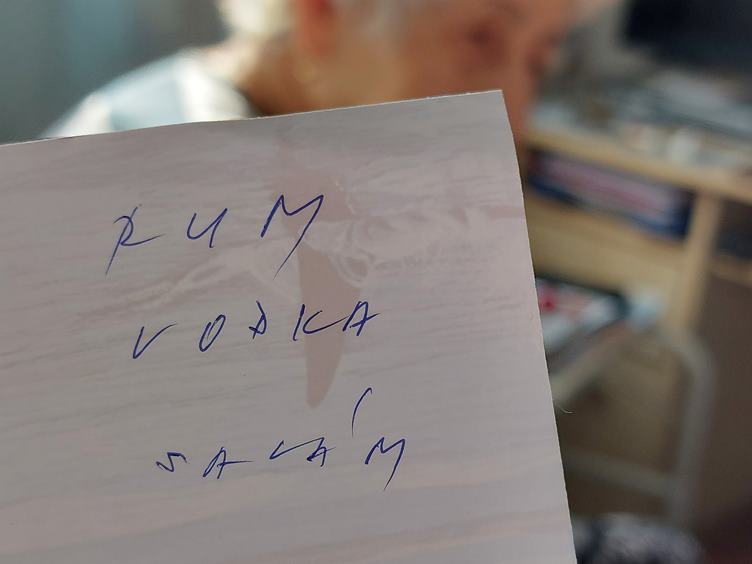 RUM
VODKA
SALÁM